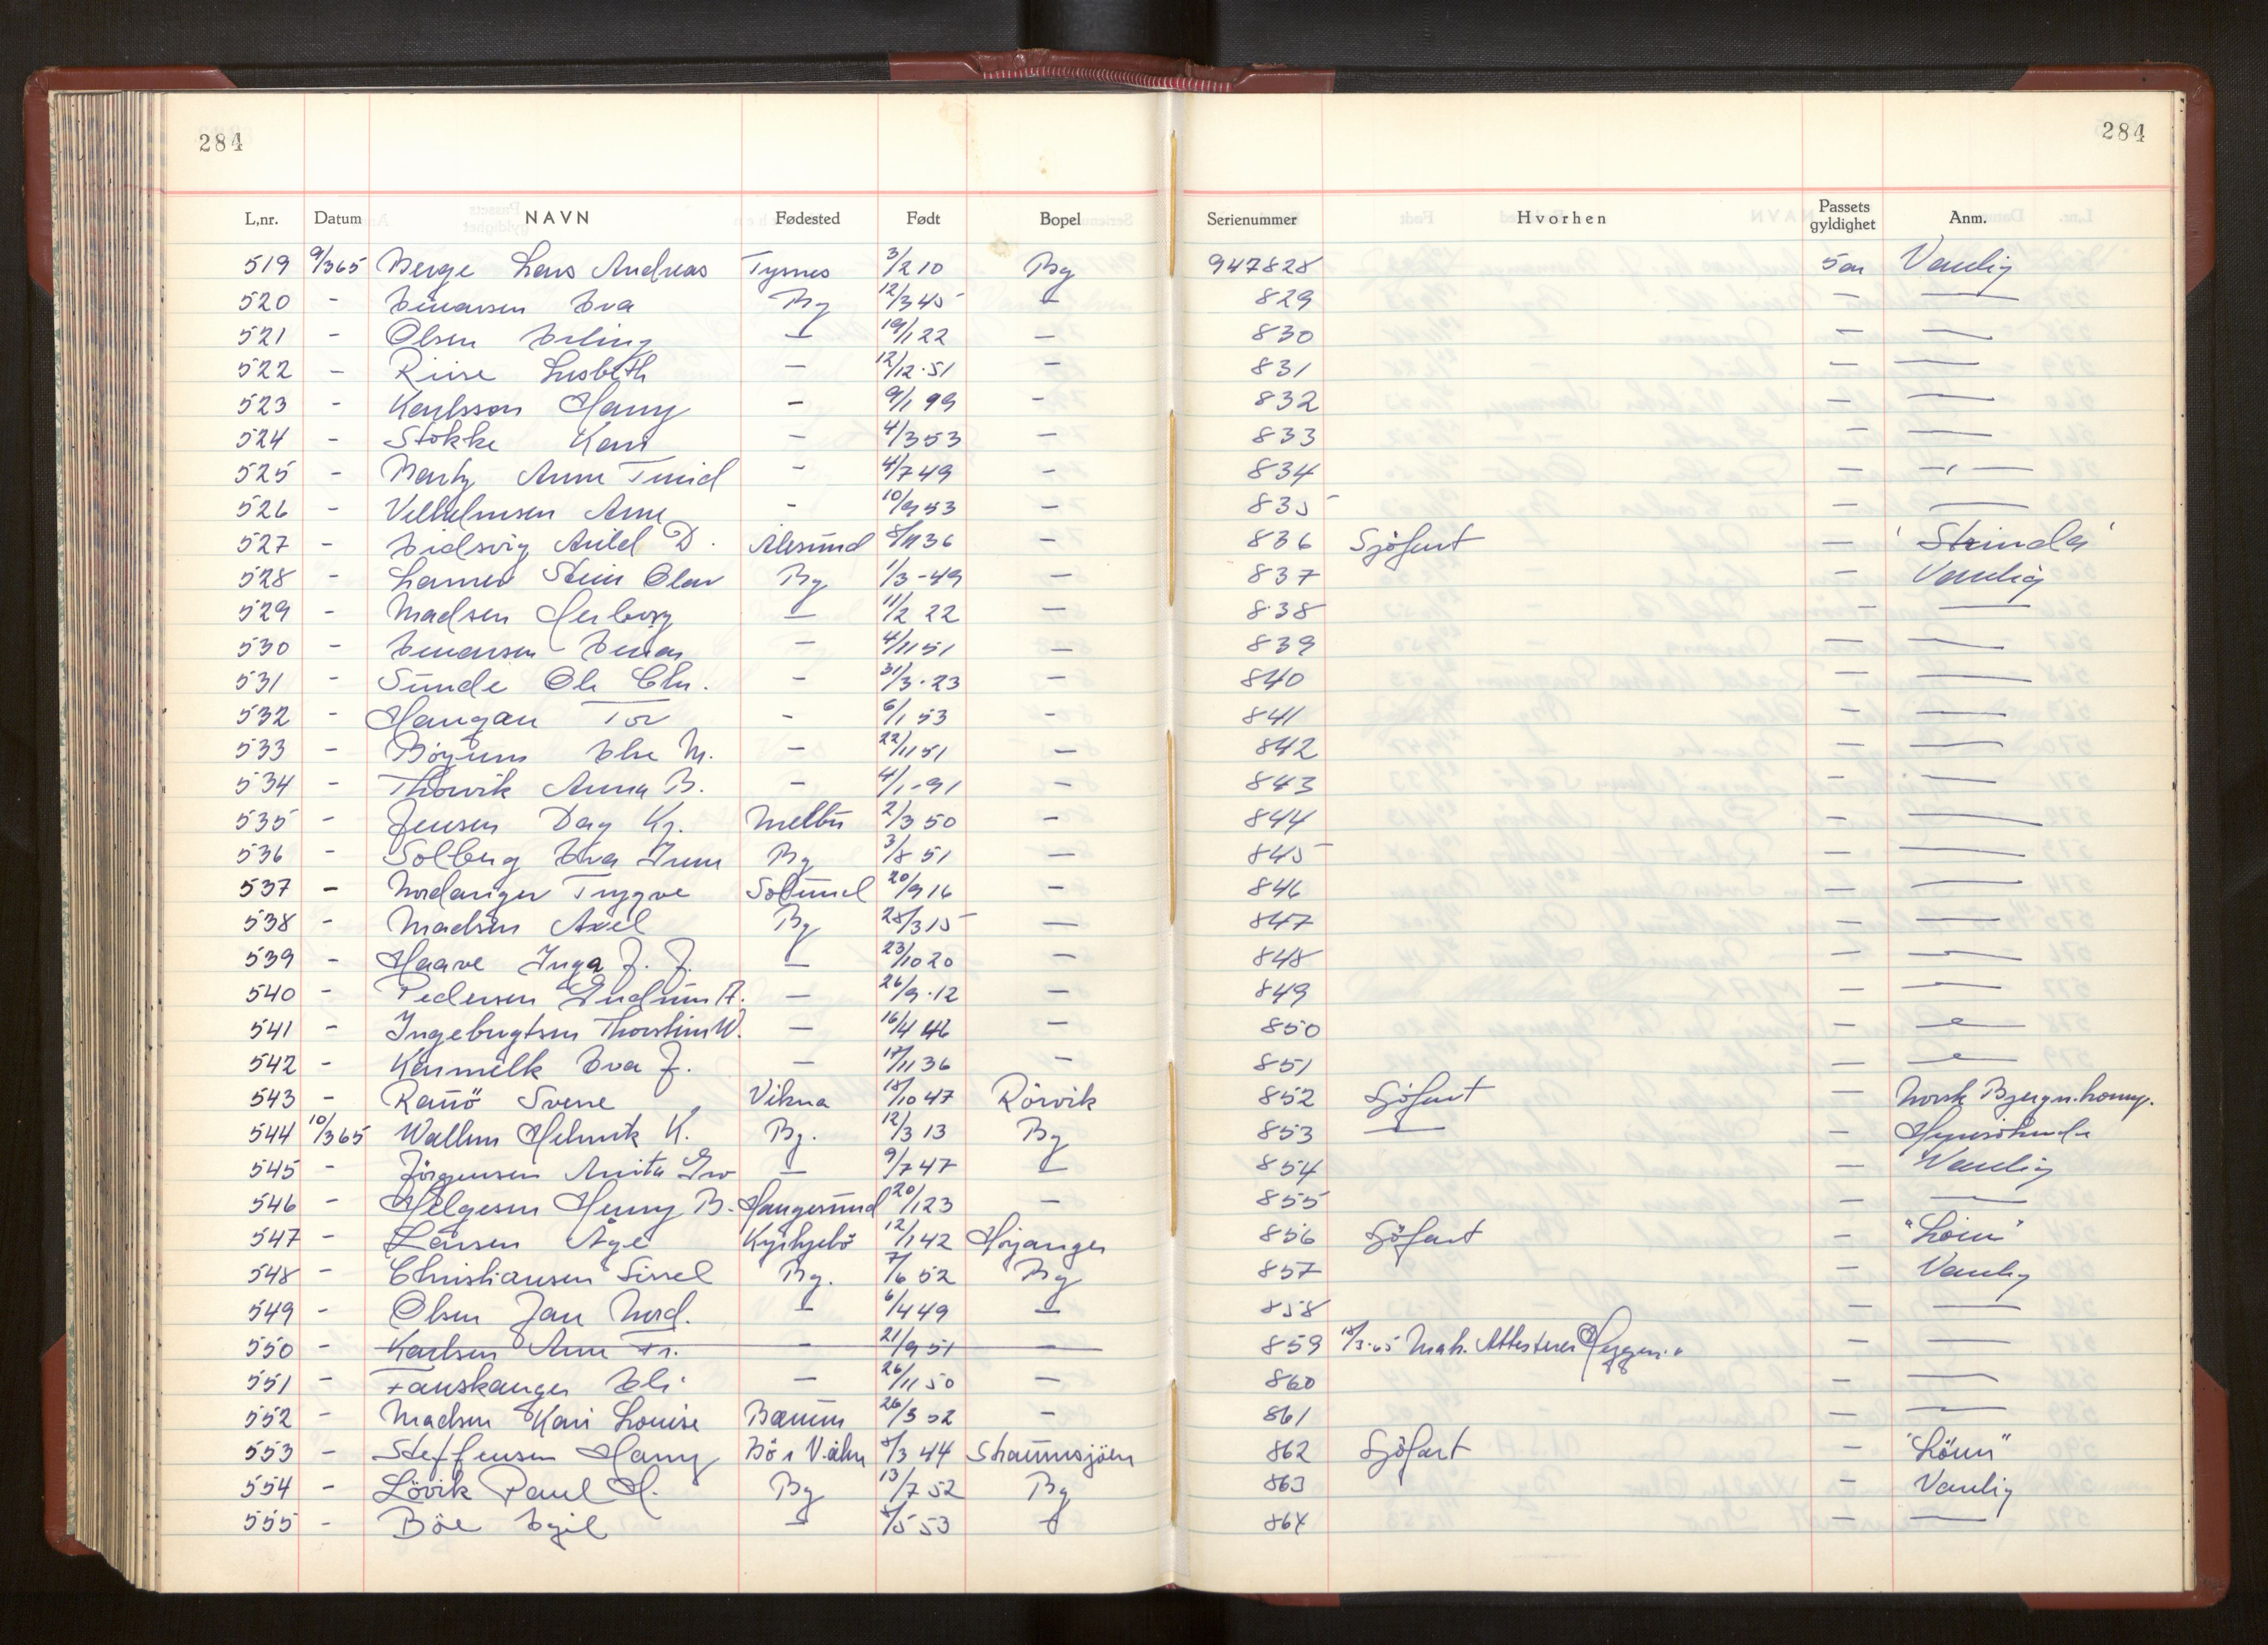 284 284
L,nr. Datum NAVN Fødested Født Bopel Serienummer Hvorhen Passets gyldighet Anm.
519 9/365 Berge Lars Andreas Tysnes 3/2 10 Bg 947828 5 år Vanlig
520 - Einarsen Eva Bg 12/3 45 — 829 — —
521 - Olsen Erling — 19/1 22 — 830 — —
522 - Riise Lisbeth — 12/12.51 — 831 — —
523 - Karlsson Harry - 9/1 99 - 832 — —
524 - Stokke Kari — 4/3 53 — 833 — —
525 - Anne Turid - 4/7 49 - 834 — —
526 - Vilhelmsen Arne - 10/9 53 — 835 — —
527 - Eidsvig Arild D. Ålesund 8/11 36 — 836 Sjöfart — "Strinda"
528 - Stein Olav Bg 1/3-49 — 837 — Vanlig
529 - Madsen Herborg — 11/2 22 — 838 — —
530 - Einarsen Einar — 4/11 51 — 839 — —
531 - Sunde Ole Chr. - 31/3.23 — 840 — —
532 - Haugan Tor - 6/1 53 - 841 — —
533 - Böyum Else M. — 22/11 51 — 842 — —
534 - Thorvik Anna B. - 4/1-91 — 843 — —
535 - Jensen Dag Kj. Melbu 2/3 50 - 844 — —
536 - Solberg Eva Bg 3/8 51 — 845 — —
537 - Nordanger Trygve Solund 20/9 16 - 846 — —
538 - Madsen Axel Bg 28/3 15 — 847 — —
539 - Haave Inga J. J. — 23/10 20 — 848 — —
540 - Pedersen Gudrun A. — 26/9.12 — 849 — —
541 - Ingebrigtsen Thorstein W. — 16/4 46 — 850 — —
542 - Eva J. — 17/11 36 — 851 — —
543 - Ranö Sverre Vikna 18/10 47 Rörvik 852 Sjöfart — Norsk Bjergn.komp.
544 10/365 Wallem Helmik K. Bg. 12/3 13 Bg 853 — -
545 - Jörgensen Anita Gro — 9/7 47 — 854 — Vanlig
546 - Helgesen Henny B. Haugesund 20/1 23 — 855 — —
547 - Larsen Åge Kyrkjebö 12/1 42 Höyanger 856 Sjöfart -
548 - Christiansen Sissel Bg. 7/6 52 Bg 857 — Vanlig
549 - Olsen Jan Nord. — 6/4 49 — 858 — —
550 - Karlsen Fr. — 21/9 51 — 859 18/3.65 Mak. Attesteres — —
551 - Fauskanger Eli — 26/11 50 — 860 — —
552 - Madsen Kari Louise Bærum 26/3 52 - 861 — —
553 - Steffensen Harry Bö i V.ålen 8/3 44 Straumsjöen 862 Sjöfart — "Lönn"
554 - Lövik Paul H. Bg 13/7 52 Bg 863 - Vanlig
555 - Böe Egil — 8/5 53 — 864 — —